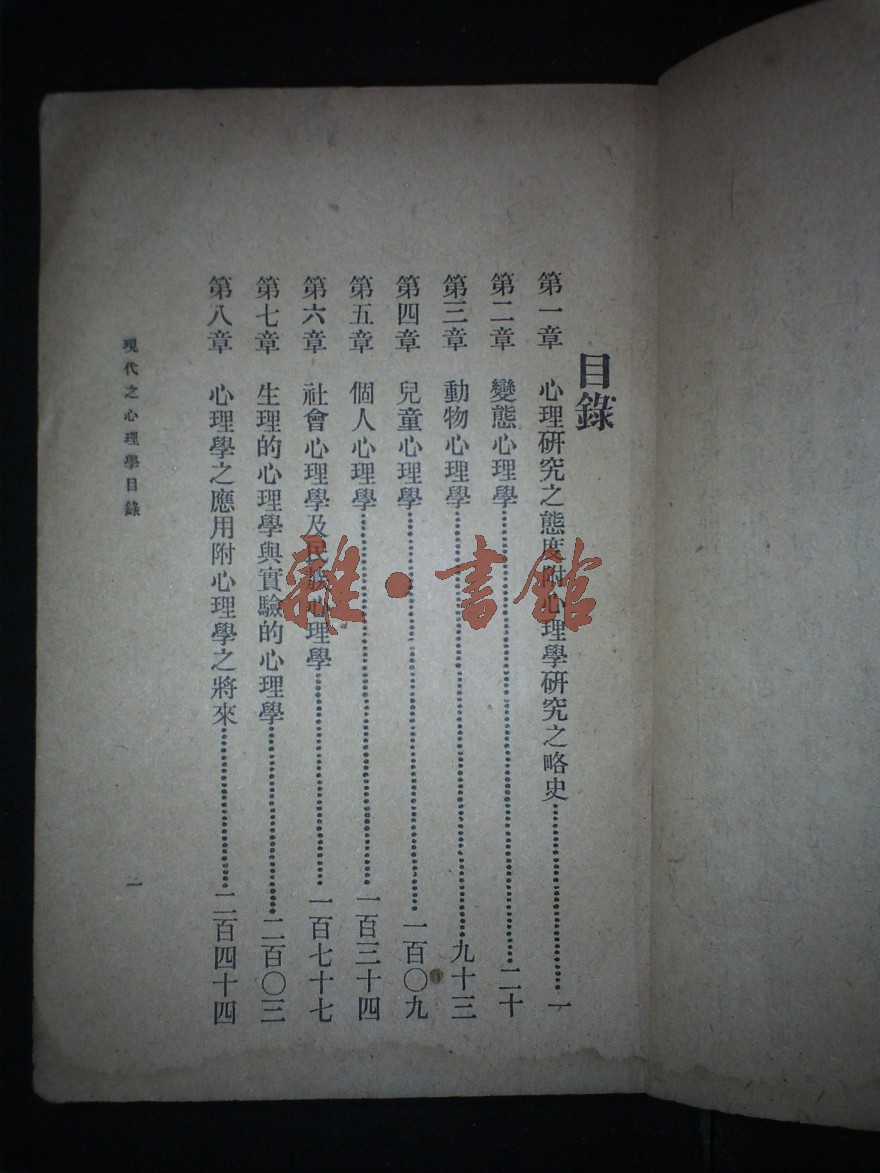 目錄
第一章 心理研究之態度附心理學研究之略史…………一
第二章 變態心理學…………二十
第三章 動物心理學…………九十三
第四章 兒童心理學…………一百〇九
第五章 個人心理學…………一百三十四
第六章 社會心理學及民族心理學…………一百七十七
第七章 生理的心理學與實驗的心理學…………二百〇三
第八章 心理學之應用附心理學之將來…………二百四十四
現代之心理學目錄
一
雜·書館